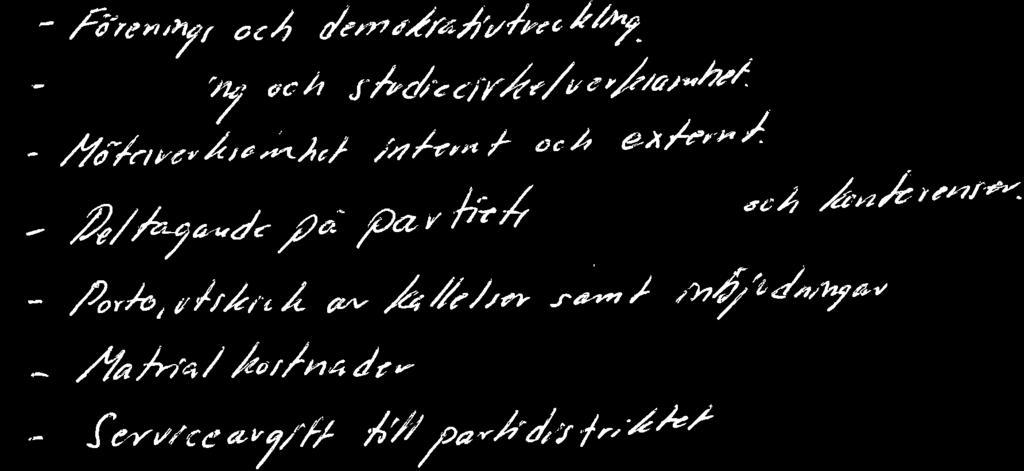 - Förenings och demokratiutveckling.
- ing och studiecirkelverksamhet.
- Mötesverksamhet internt och externt.
- Deltagande på partiets och konferenser.
- Porto, utskick av kallelser samt inbjudningar
- Matrial kostnader
- Serviceavgift till partidistriktet